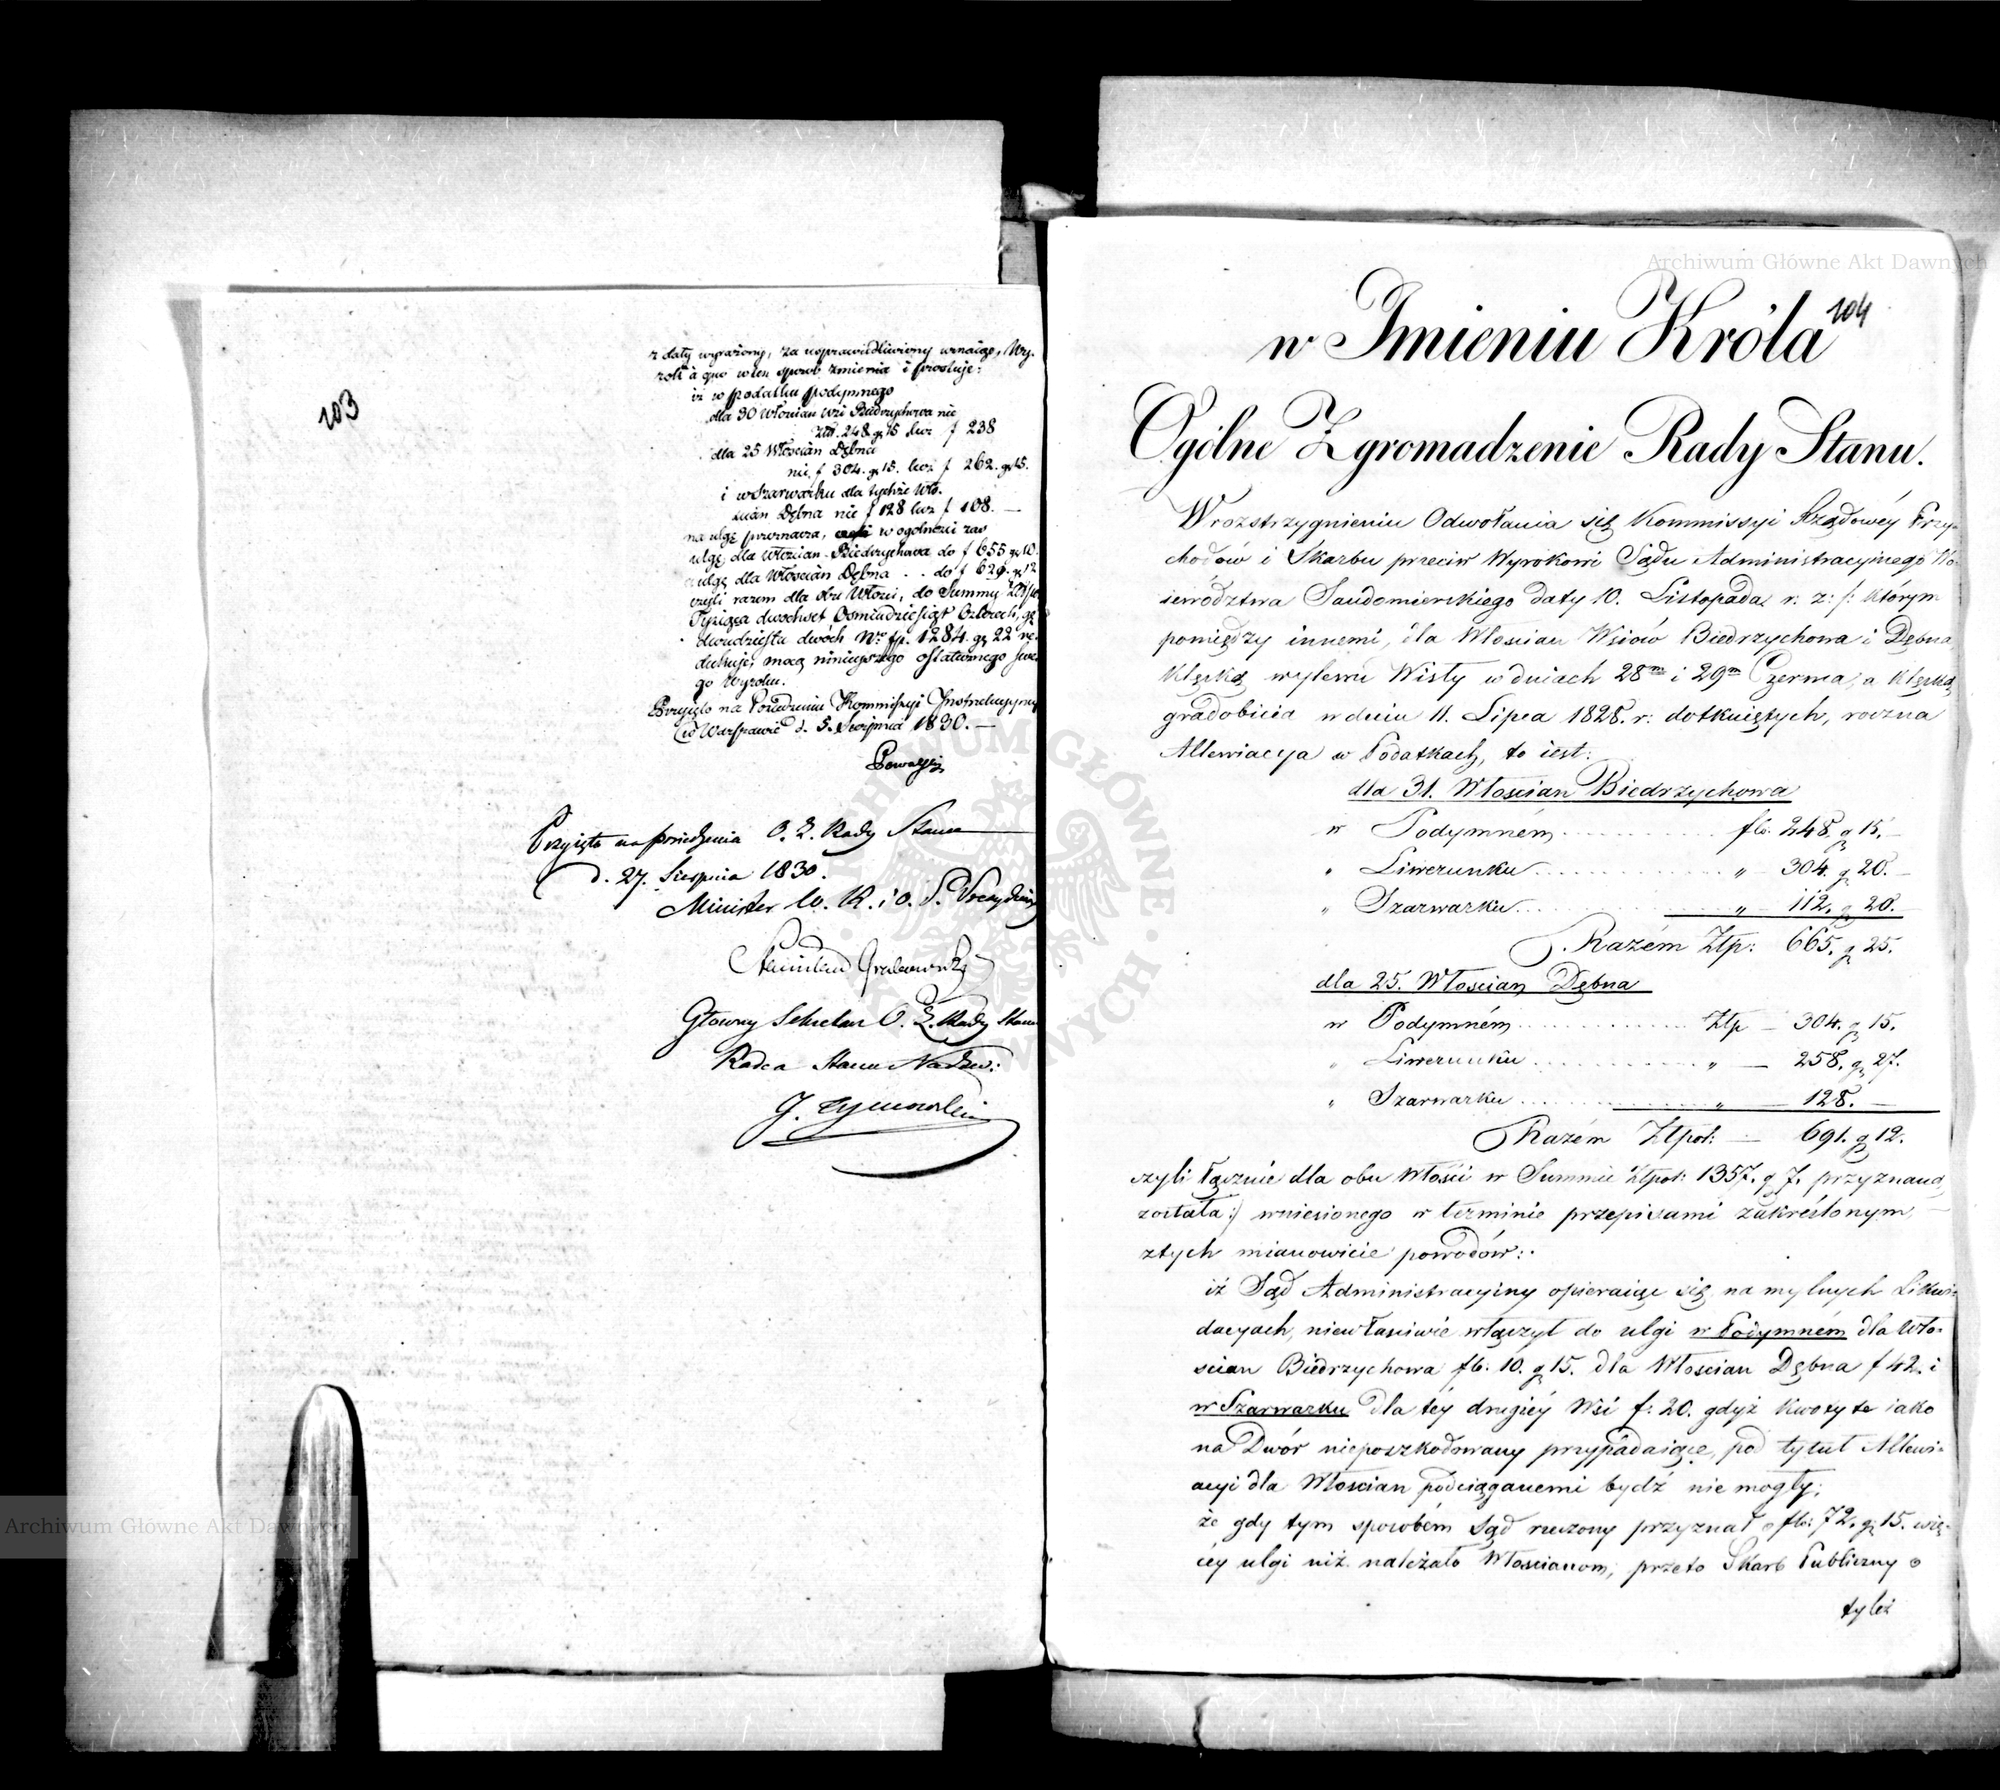 103
z daty wyrażoney, za usprawiedliwiony uznaiąc, Wy-
rok à quo w ten sposób zmienia i prostuje:
iż w podatku podymnego
dla 30 Włościan wsi Biedrzychowa nie
Złł. 248 gr 15 lecz f 238
dla 25 Włościan Dębna
nie f 304. gr 15. lecz f 262. gr 15.
i w Szarwarku dla tychże Wło-
ścian Dębna nie f 128 lecz f 108. —
na ulgę przeznacza, w ogólności zaś
ulgę dla Włościan Biedrzychowa do f 655 gr 10.
ulgę dla Włościan Dębna . . do f 629. gr 12
czyli razem dla obu Włości, do Summy
Tysiąca dwóchset Osmiudziesiąt Czterech, gr
dwudziestu dwóch Nro fp. 1284. gr 22 re-
dukuje, mocą ninieyszego ostatecznego swe-
go Wyroku.
Przyięto na Posiedzeniu Kommissyi Instrukcyyney
w Warszawie d. 5. Sierpnia 1830. —
Przyięto na posiedzeniu O. Z. Rady Stanu
d. 27. Sierpnia 1830.
Minister W. R. i O. P. Prezyduiący
Stanisław Grabowski
Głowny Sekretarz O. Z. Rady Stanu
Radca Stanu Nadzw:
J. Tymowski
104
w Imieniu Króla
Ogólne Zgromadzenie Rady Stanu.
W rozstrzygnieniu Odwołania się Kommissyi Rządowéy Przy-
chodów i Skarbu przeciw Wyrokowi Sądu Administracyinego Wo-
iewództwa Sandomierskiego daty 10. Listopada r: z: /: którym
pomiędzy innemi, dla Włościan Wsiów Biedrzychowa i Dębna,
klęską wylewu Wisły w dniach 28m i 29m Czerwca, a klęską
gradobicia w dniu 11. Lipca 1828. r: dotkniętych, roczna
Allewiacya w Podatkach, to iest:
dla 31. Włościan Biedrzychowa
w Podymném . . . . . . . . . . fl: 248. gr 15. —
„ Liwerunku . . . . . . . . . . „ — 304. gr 20. —
„ Szarwarku . . . . . . . . . . „ — 112. gr 20. —
Razém Ztp: 665. gr 25.
dla 25. Włościan Dębna
w Podymném . . . . . . . . . . Ztp — 304. gr 15.
„ Liwerunku . . . . . . . . . . „ — 258. gr 27.
„ Szarwarku . . . . . . . . . . „ — 128. —
Razém Ztpol: — 691. gr 12.
czyli łącznie dla obu Włości w Summie Ztpol: 1357. gr 7. przyznaną
została :/ wniesionego w terminie przepisami zakréślonym, —
z tych mianowicie powodów:
iż Sąd Administracyiny opieraiąc się na mylnych Likwi-
dacyach, niewłaściwie włączył do ulgi w Podymném dla Wło-
ścian Biedrzychowa fl: 10. gr 15. dla Włościan Dębna f 42. i
w Szarwarku dla téy drugiéy Wsi f: 20. gdyż kwoty te iako
na Dwór nieposzkodowany przypadaiące, pod tytuł Allewi-
acyi dla Włościan podciąganemi bydź nie mogły;
że gdy tym sposobém Sąd rzeczony przyznał o fl: 72. gr 15. wię-
céy ulgi niż należało Włościanom, przeto Skarb Publiczny o
tyleż
Archiwum Główne Akt Dawnych
Archiwum Główne Akt Dawnych
ARCHIWUM GŁÓWNE AKT DAWNYCH